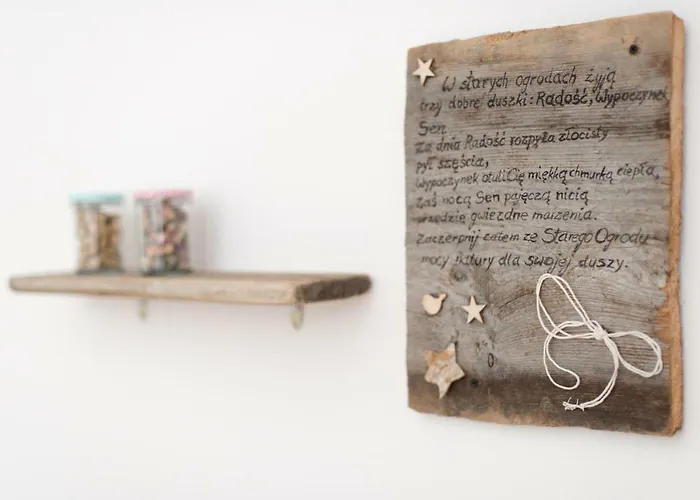 W starych ogrodach żyją
trzy dobre duszki: Radość, Wypoczynek
Sen
Za dnia Radość rozpyla złocisty
pył szęścia,
Wypoczynek otuli Cię miękką chmurką ciepła,
Zaś nocą Sen pajęczą nicią
przędzie gwiezdne marzenia.
Zaczerpnij zatem ze Starego Ogrodu
mocy natury dla swojej duszy.